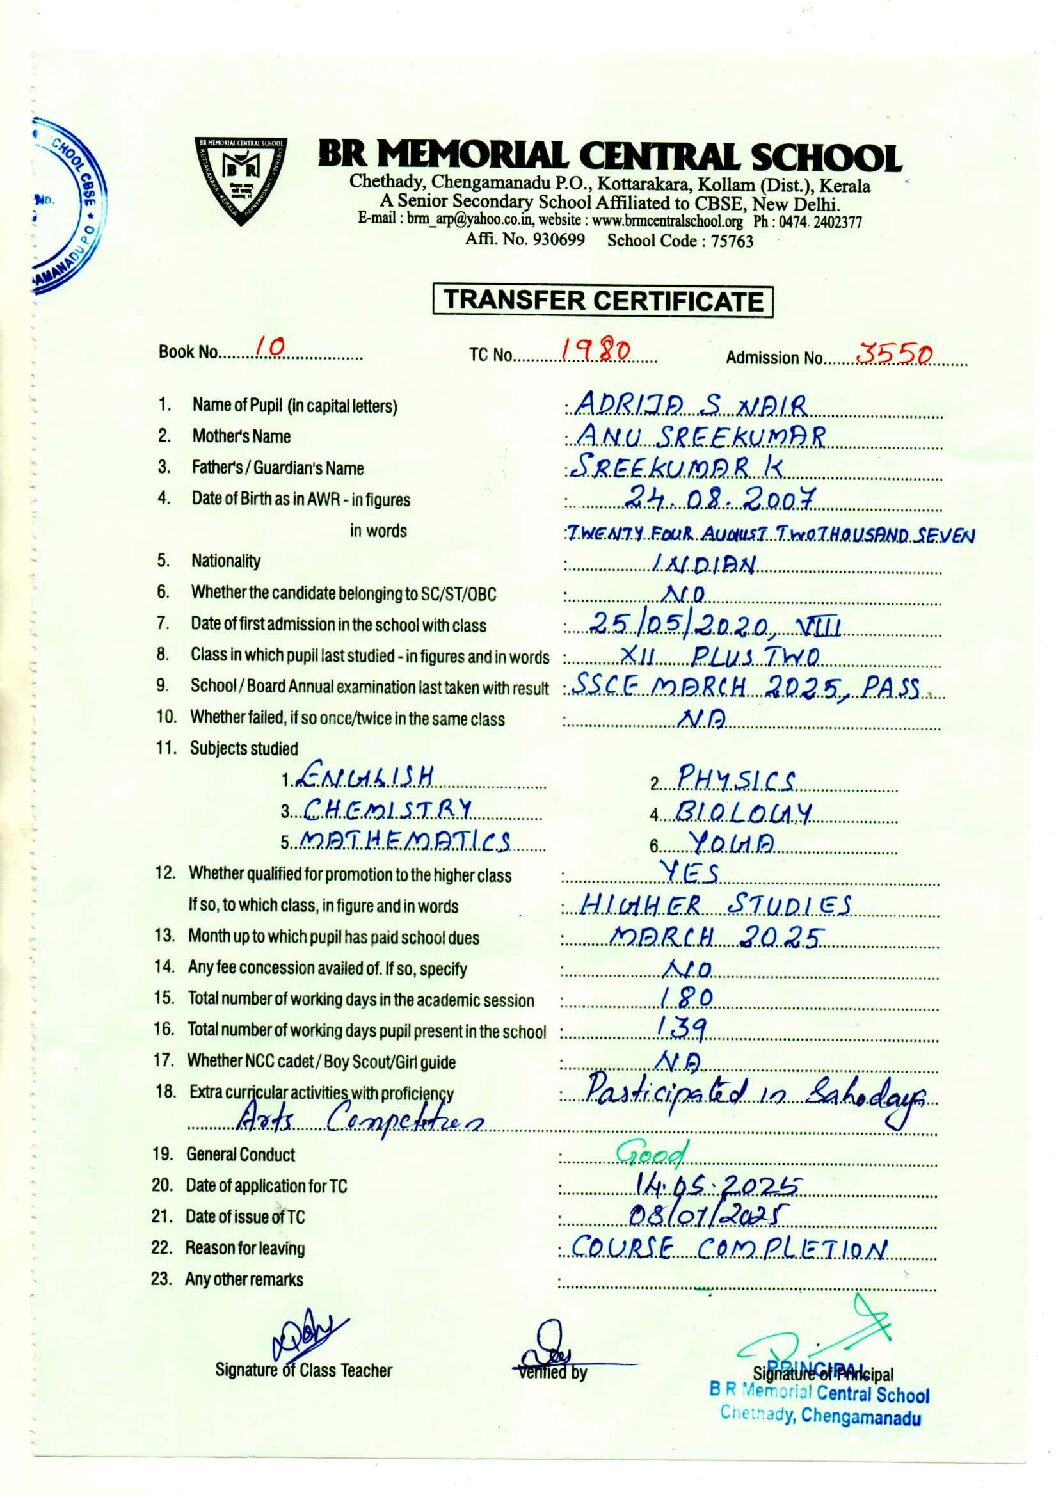 CHOOL CBSE ★
No.
AMANADU P.O
BR MEMORIAL CENTRAL SCHOOL
BR
BR MEMORIAL CENTRAL SCHOOL
Chethady, Chengamanadu P.O., Kottarakara, Kollam (Dist.), Kerala
A Senior Secondary School Affiliated to CBSE, New Delhi.
E-mail : brm_arp@yahoo.co.in, website : www.brmcentralschool.org Ph : 0474 2402377
Affi. No. 930699 School Code : 75763
TRANSFER CERTIFICATE
Book No. 10 TC No. 1980 Admission No. 3550
1. Name of Pupil (in capital letters) : ADRIJA S NAIR
2. Mother's Name : ANU SREEKUMAR
3. Father's / Guardian's Name : SREEKUMAR K
4. Date of Birth as in AWR - in figures : 24.08.2007
in words : TWENTY FOUR AUGUST TWO THOUSAND SEVEN
5. Nationality : INDIAN
6. Whether the candidate belonging to SC/ST/OBC : NO
7. Date of first admission in the school with class : 25/05/2020, VIII
8. Class in which pupil last studied - in figures and in words : XII PLUS TWO
9. School / Board Annual examination last taken with result : SSCE MARCH 2025, PASS
10. Whether failed, if so once/twice in the same class : NA
11. Subjects studied
1. ENGLISH 2. PHYSICS
3. CHEMISTRY 4. BIOLOGY
5. MATHEMATICS 6. YOGA
12. Whether qualified for promotion to the higher class : YES
If so, to which class, in figure and in words : HIGHER STUDIES
13. Month up to which pupil has paid school dues : MARCH 2025
14. Any fee concession availed of. If so, specify : NO
15. Total number of working days in the academic session : 180
16. Total number of working days pupil present in the school : 139
17. Whether NCC cadet / Boy Scout/Girl guide : NA
18. Extra curricular activities with proficiency : Participated in Sahodaya
Arts Competition
19. General Conduct : Good
20. Date of application for TC : 14.05.2025
21. Date of issue of TC : 08/07/2025
22. Reason for leaving : COURSE COMPLETION
23. Any other remarks :
Signature of Class Teacher Verified by Signature of Principal
PRINCIPAL
B R Memorial Central School
Chethady, Chengamanadu